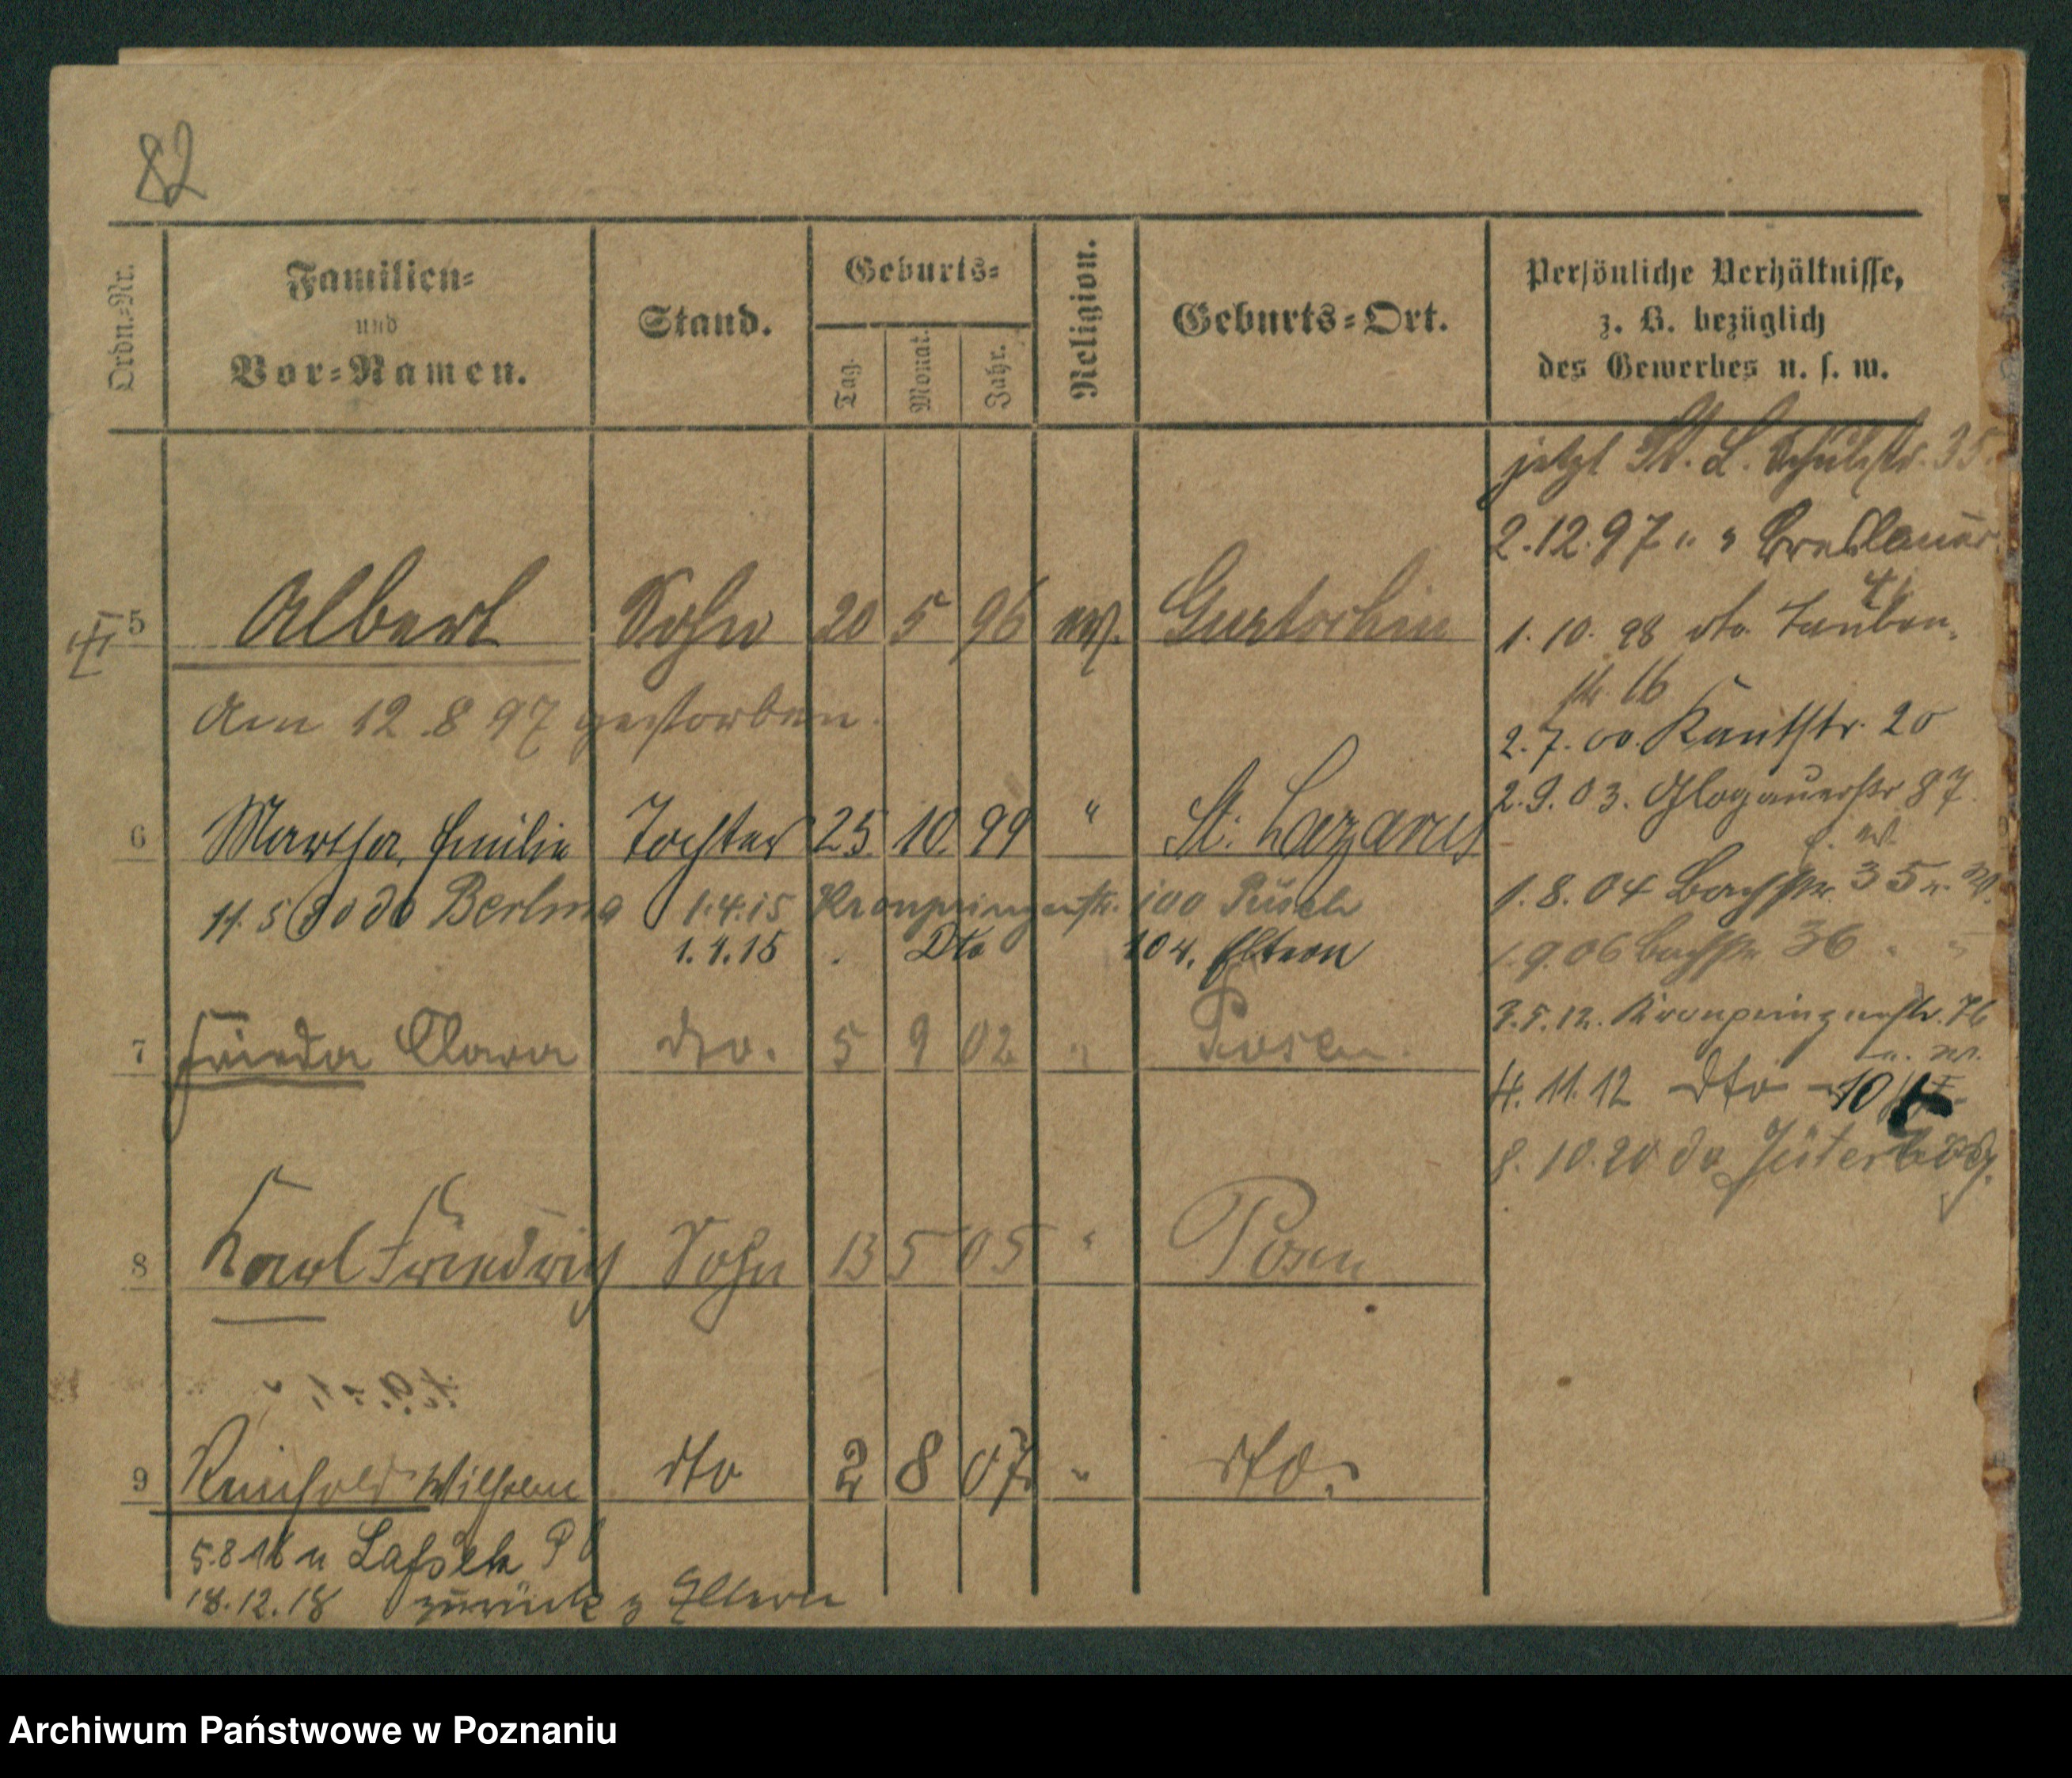 82
Ordn.-Nr.
Familien-
und
Vor-Namen.
Stand.
Geburts-
Tag.
Monat.
Jahr.
Religion.
Geburts-Ort.
Persönliche Verhältnisse,
z. B. bezüglich
des Gewerbes u. s. w.
jetzt St. L. Schulstr. 35
2.12.97 " " Breslauer
1. 10. 98 dto Tauben-
str. 16
2. 7. 00. Kantstr. 20
2. 9. 03. Glogauerstr 87
1. 8. 04 Bachstr. 35
1. 9. 06 Bachstr 36
3. 5. 12. Kronprinzenstr. 76
4. 11. 12 dto
8. 10. 20 do Jüterbog.
5 Albert Sohn 20 5 96 ev. Gurtschin
am 12.8 97 gestorben.
6 Martha, Emilie Tochter 25. 10. 99 " St. Lazarus
11. 5 Berlin
1.4.15 Kronprinzenstr. 100
1.4.15 . Dto 104, Eltern
7 Frieda Clara dto. 5 9 02 " Posen.
8 Karl Friedrich Sohn 13 5 05 " Posen
9 Reinhold Wilhelm dto 2 8 07 " dto.
5.8 16 n
18.12.18 zurück z Eltern
Archiwum Państwowe w Poznaniu